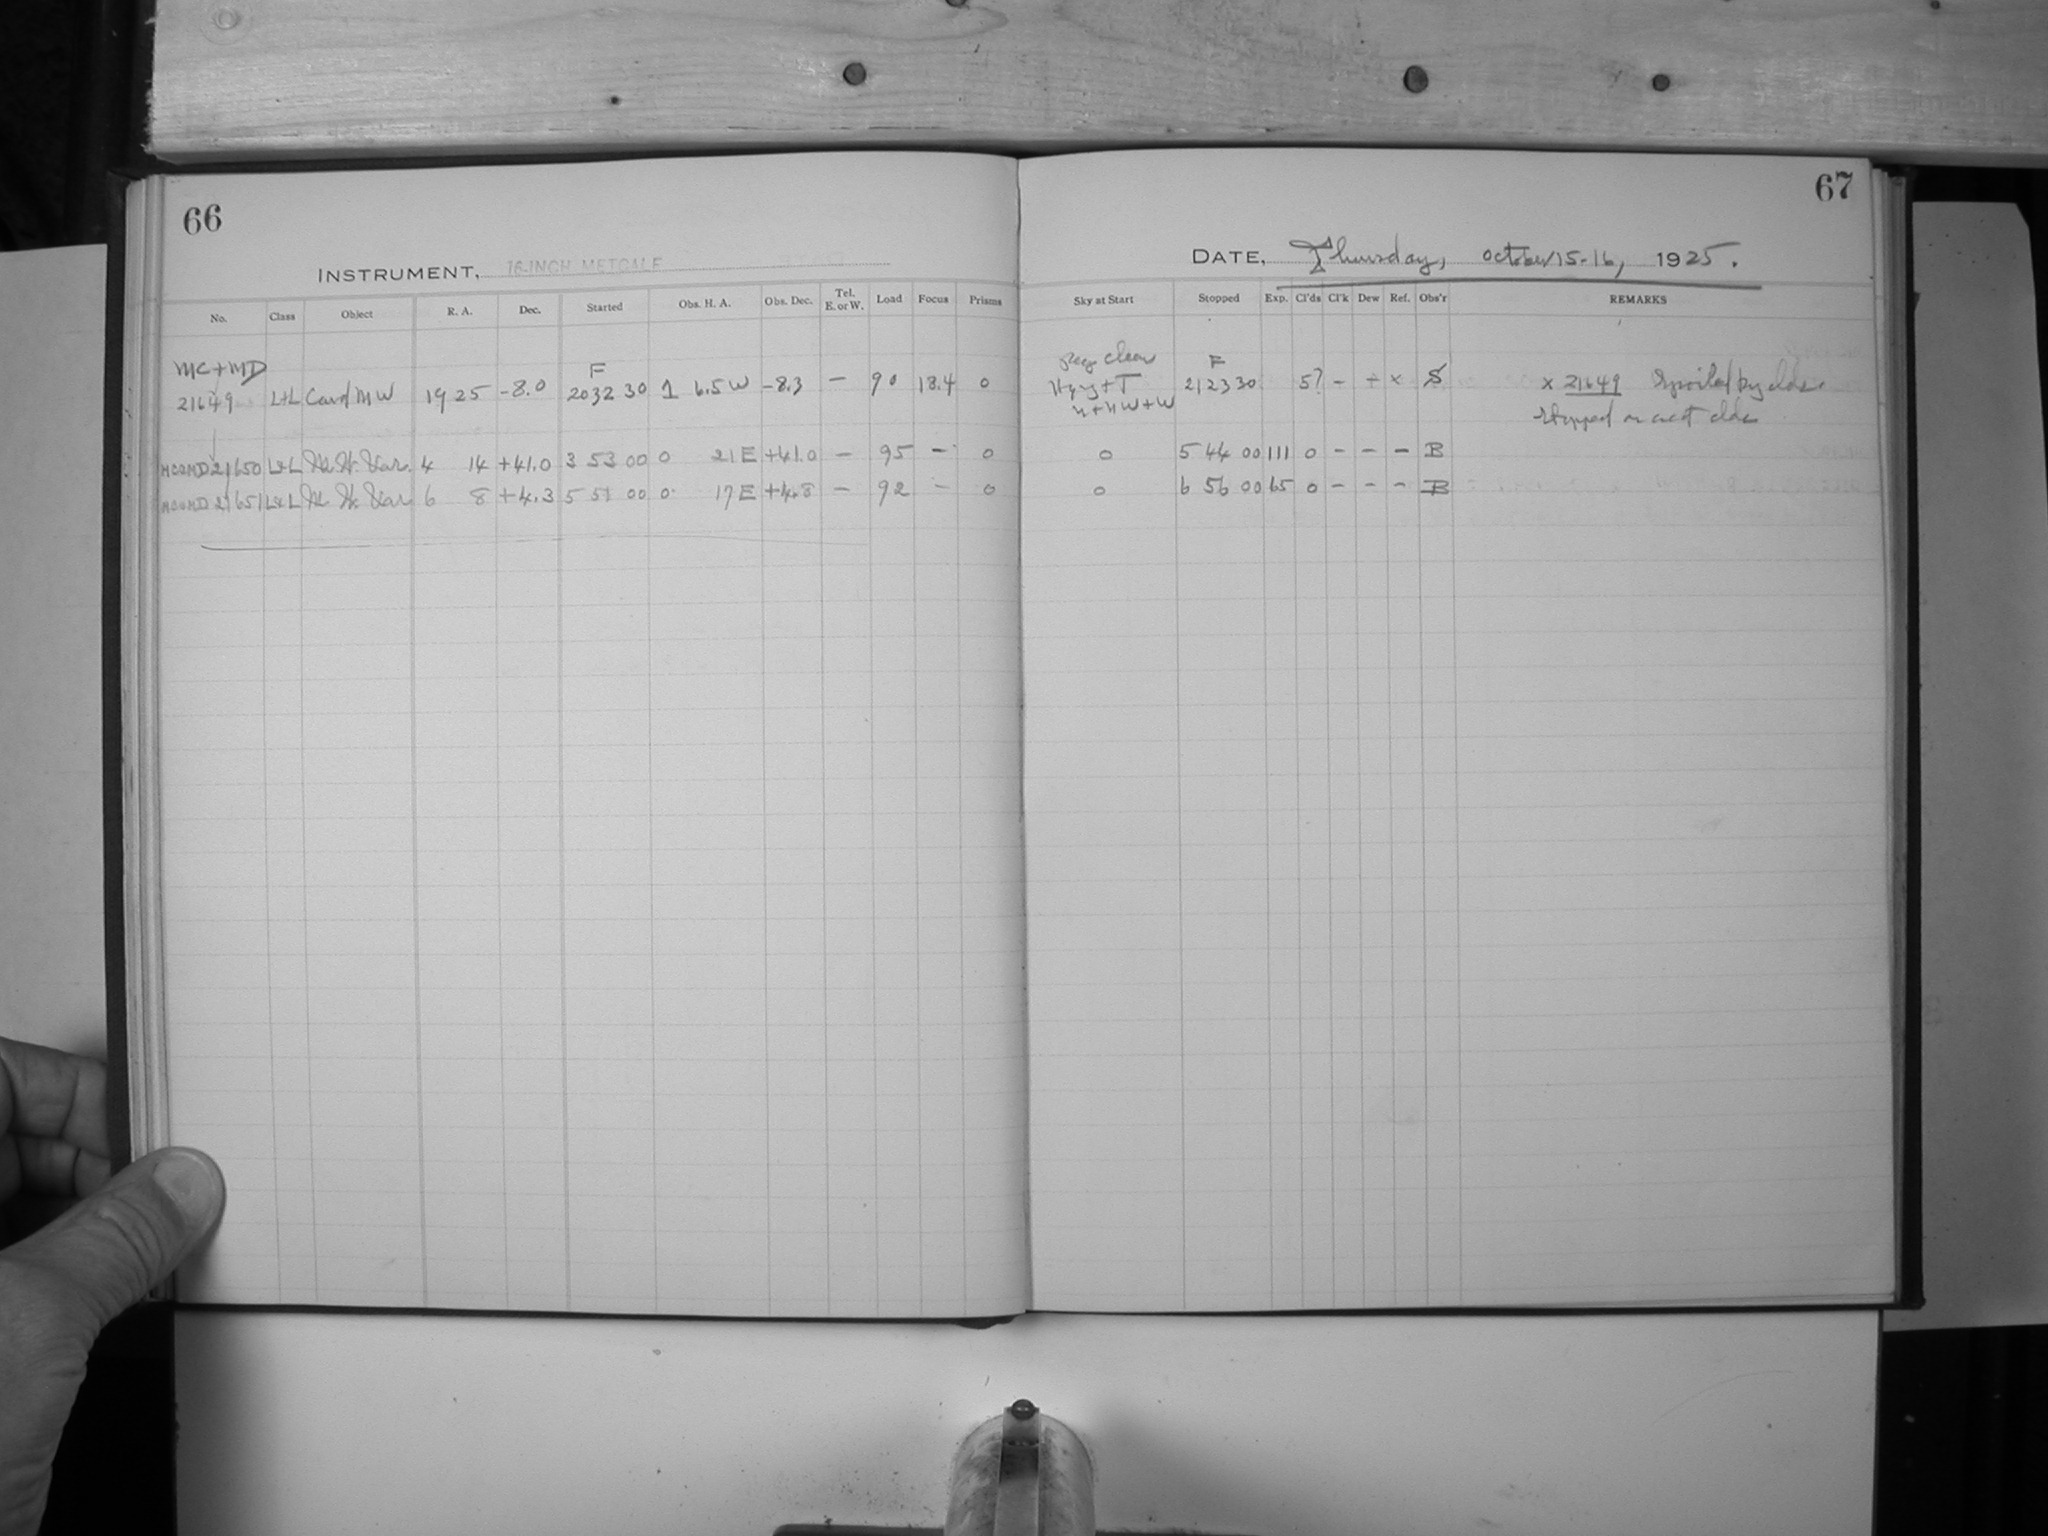 66
67
INSTRUMENT, 16-INCH METCALF
DATE, Thursday, October 15-16, 1925.
No. Class Object R. A. Dec. Started Obs. H. A. Obs. Dec. Tel. E. or W. Load Focus Prisms
Sky at Start Stopped Exp. Cl'ds Cl'k Dew Ref. Obs'r REMARKS
MC+MD F clear F
21649 L+L Card M W 19 25 -8.0 20 32 30 1 6.5 W -8.3 — 90 18.4 0 Hazy + T 21 23 30 5? - + x S x 21649 Spoiled by clds.
N + NW + W Stopped on acct clds
MC&MD 21650 L&L 4 14 +41.0 3 53 00 0 21 E +41.0 — 95 — 0 0 5 44 00 111 0 - - - B
MC&MD 21651 L&L 6 8 +4.3 5 51 00 0 17 E +4.8 — 92 — 0 0 6 56 00 65 0 - - - B